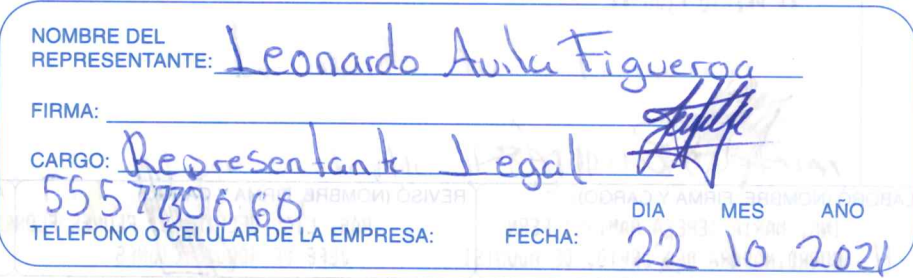 NOMBRE DEL
REPRESENTANTE: Leonardo Avila Figueroa
FIRMA:
CARGO: Representante Legal
TELEFONO O CELULAR DE LA EMPRESA:
FECHA: DIA MES AÑO
22 10 2021